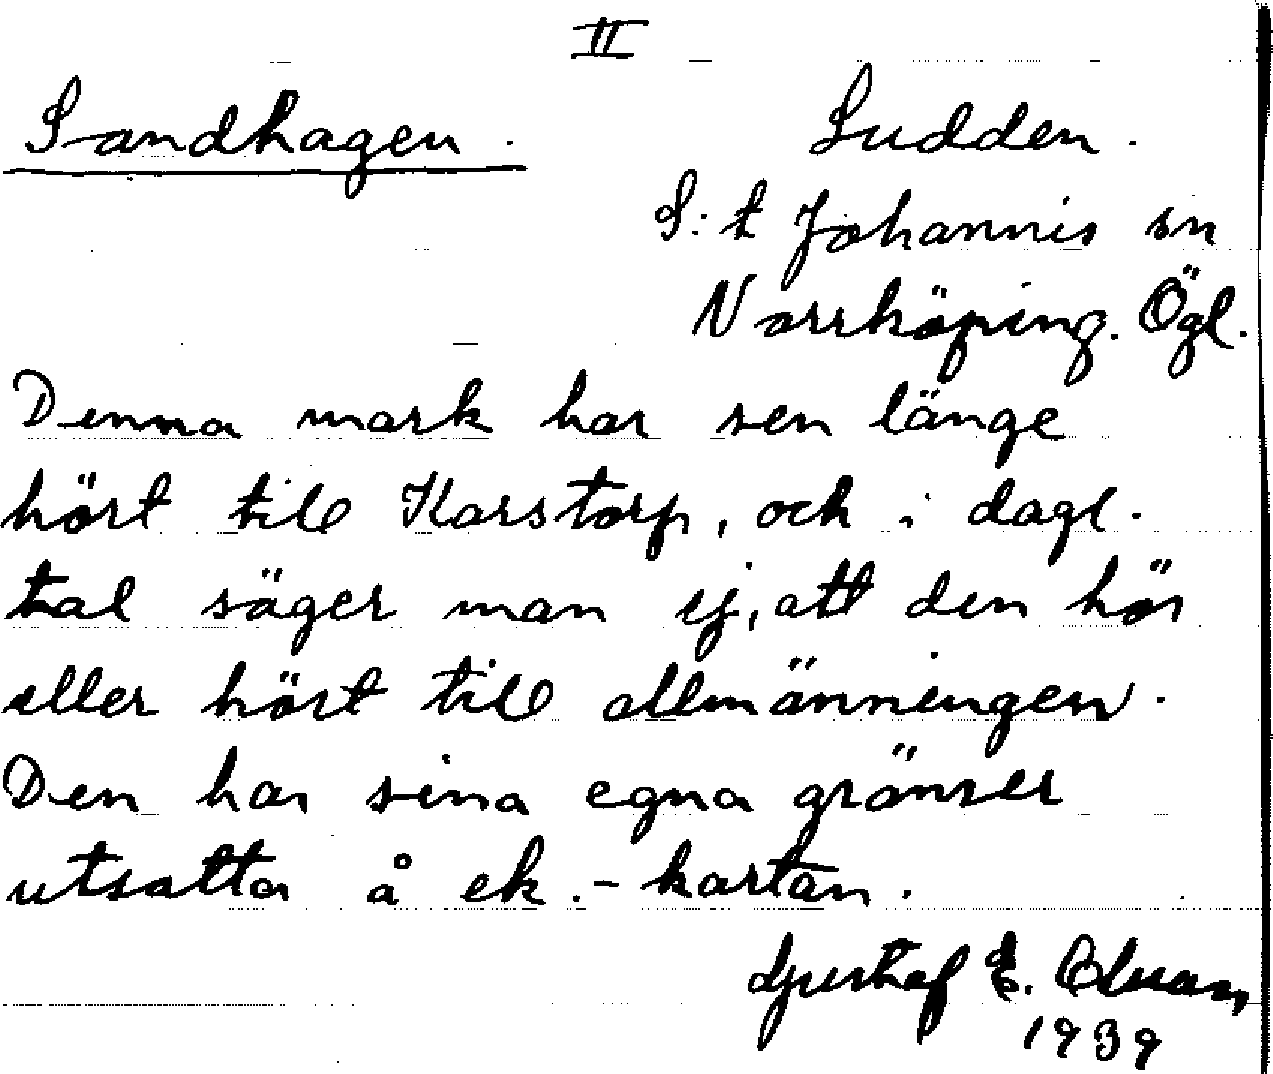 II
Sandhagen.
Sudden.
S:t Johannis sn
Norrköping. Ögl.
Denna mark har sen länge
hört till Karstorp, och i dagl.
tal säger man ej, att den hör
eller hört till allmänningen.
Den har sina egna gränser
utsatta å ek.-kartan.
Gustaf E.
1939